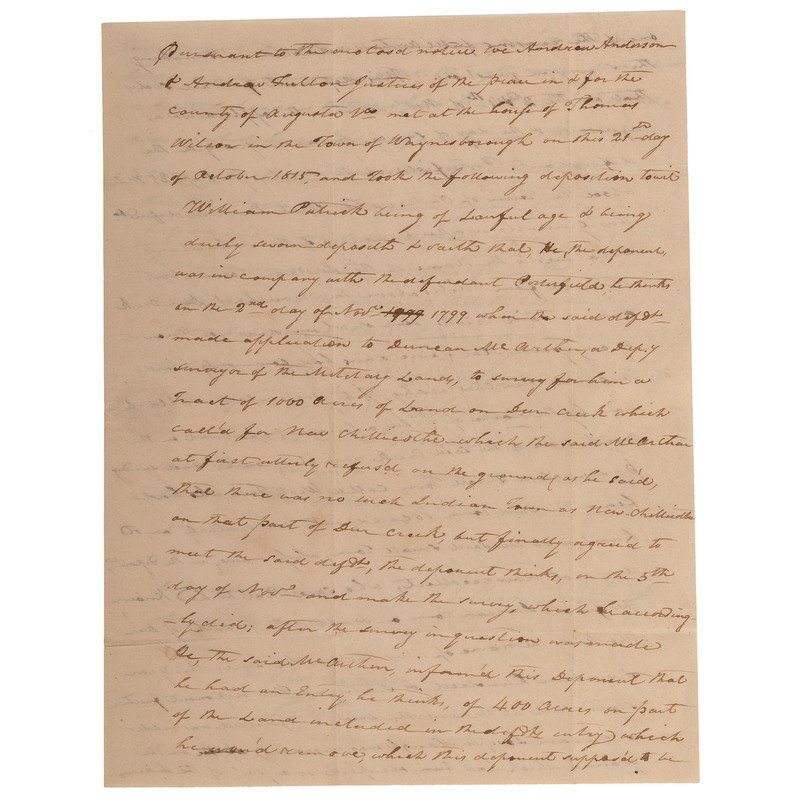 Pursuant to the enclosd notice we Andrew Anderson
& Andrew Fulton Justices of the peace in & for the
county of Augusta Va met at the house of Thomas
Wilson in the Town of Waynesborough on this 21st day
of October 1815, and Took the following deposition towit
William Patrick being of Lawful age & being
duely sworn deposeth & saith that, He, the deponent,
was in company with the defendant Porterfield he thinks
on the 2nd day of Novr 1799 when the said defdt
made application to Duncan McArthur, a Depy
surveyor of the Military Lands, to survey for him a
Tract of 1000 Acres of Land on Deer Creek which
call'd for New Chillicothe which the said McArthur
at first utterly refused, on the ground (as he said,
that there was no such Indian Town as New Chillicothe
on that part of Deer Creek, but finally agree'd to
meet the said defdt, the deponent thinks, on the 5th
day of Novr and make the survey, which he according-
-ly did; after the survey in question was made
He, the said McArthur, inform'd this Deponent that
he had an Entry, he thinks, of 400 Acres on part
of the Land included in the defdts entry, which
he remove, which this deponent suppos'd to be